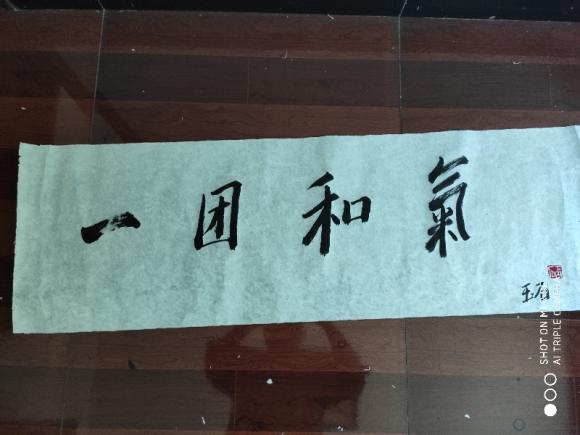 一团和氣
SHOT ON M
AI TRIPLE C